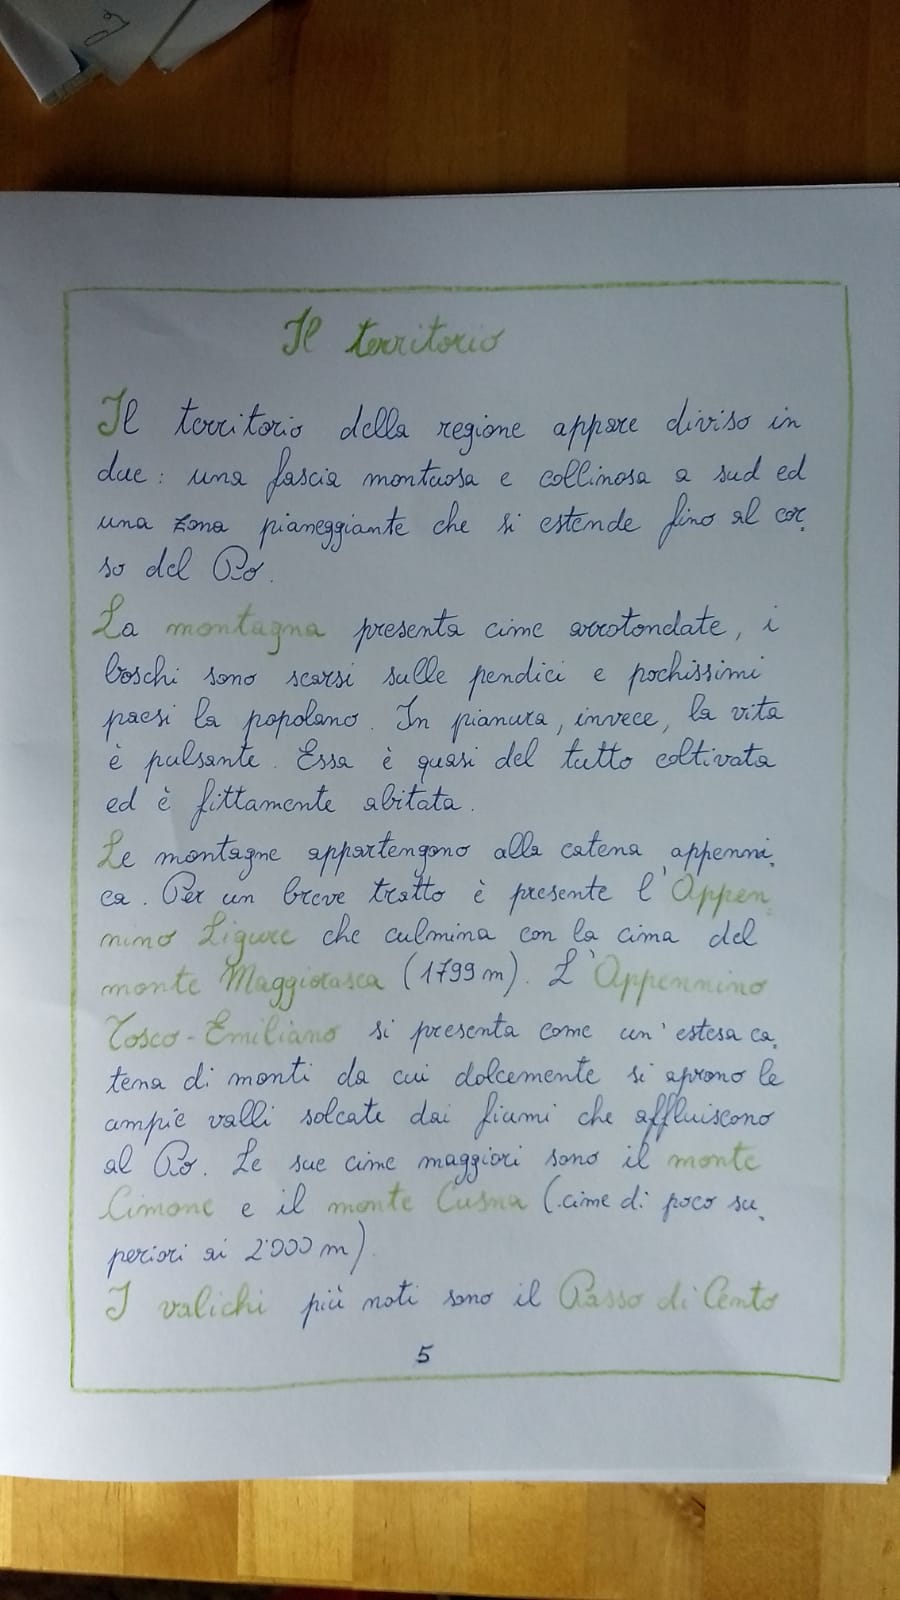 Il territorio
Il territorio della regione appare diviso in
due: una fascia montuosa e collinosa a sud ed
una zona pianeggiante che si estende fino al cor-
so del Po.
La montagna presenta cime arrotondate, i
boschi sono scarsi sulle pendici e pochissimi
paesi la popolano. In pianura, invece, la vita
è pulsante. Essa è quasi del tutto coltivata
ed è fittamente abitata.
Le montagne appartengono alla catena appenni-
ca. Per un breve tratto è presente l'Appen-
nino Ligure che culmina con la cima del
monte Maggiorasca (1799 m). L'Appennino
Tosco-Emiliano si presenta come un'estesa ca-
tena di monti da cui dolcemente si aprono le
ampie valli solcate dai fiumi che affluiscono
al Po. Le sue cime maggiori sono il monte
Cimone e il monte Cusna (cime di poco su-
periori ai 2'000 m).
I valichi più noti sono il Passo di Cento
5